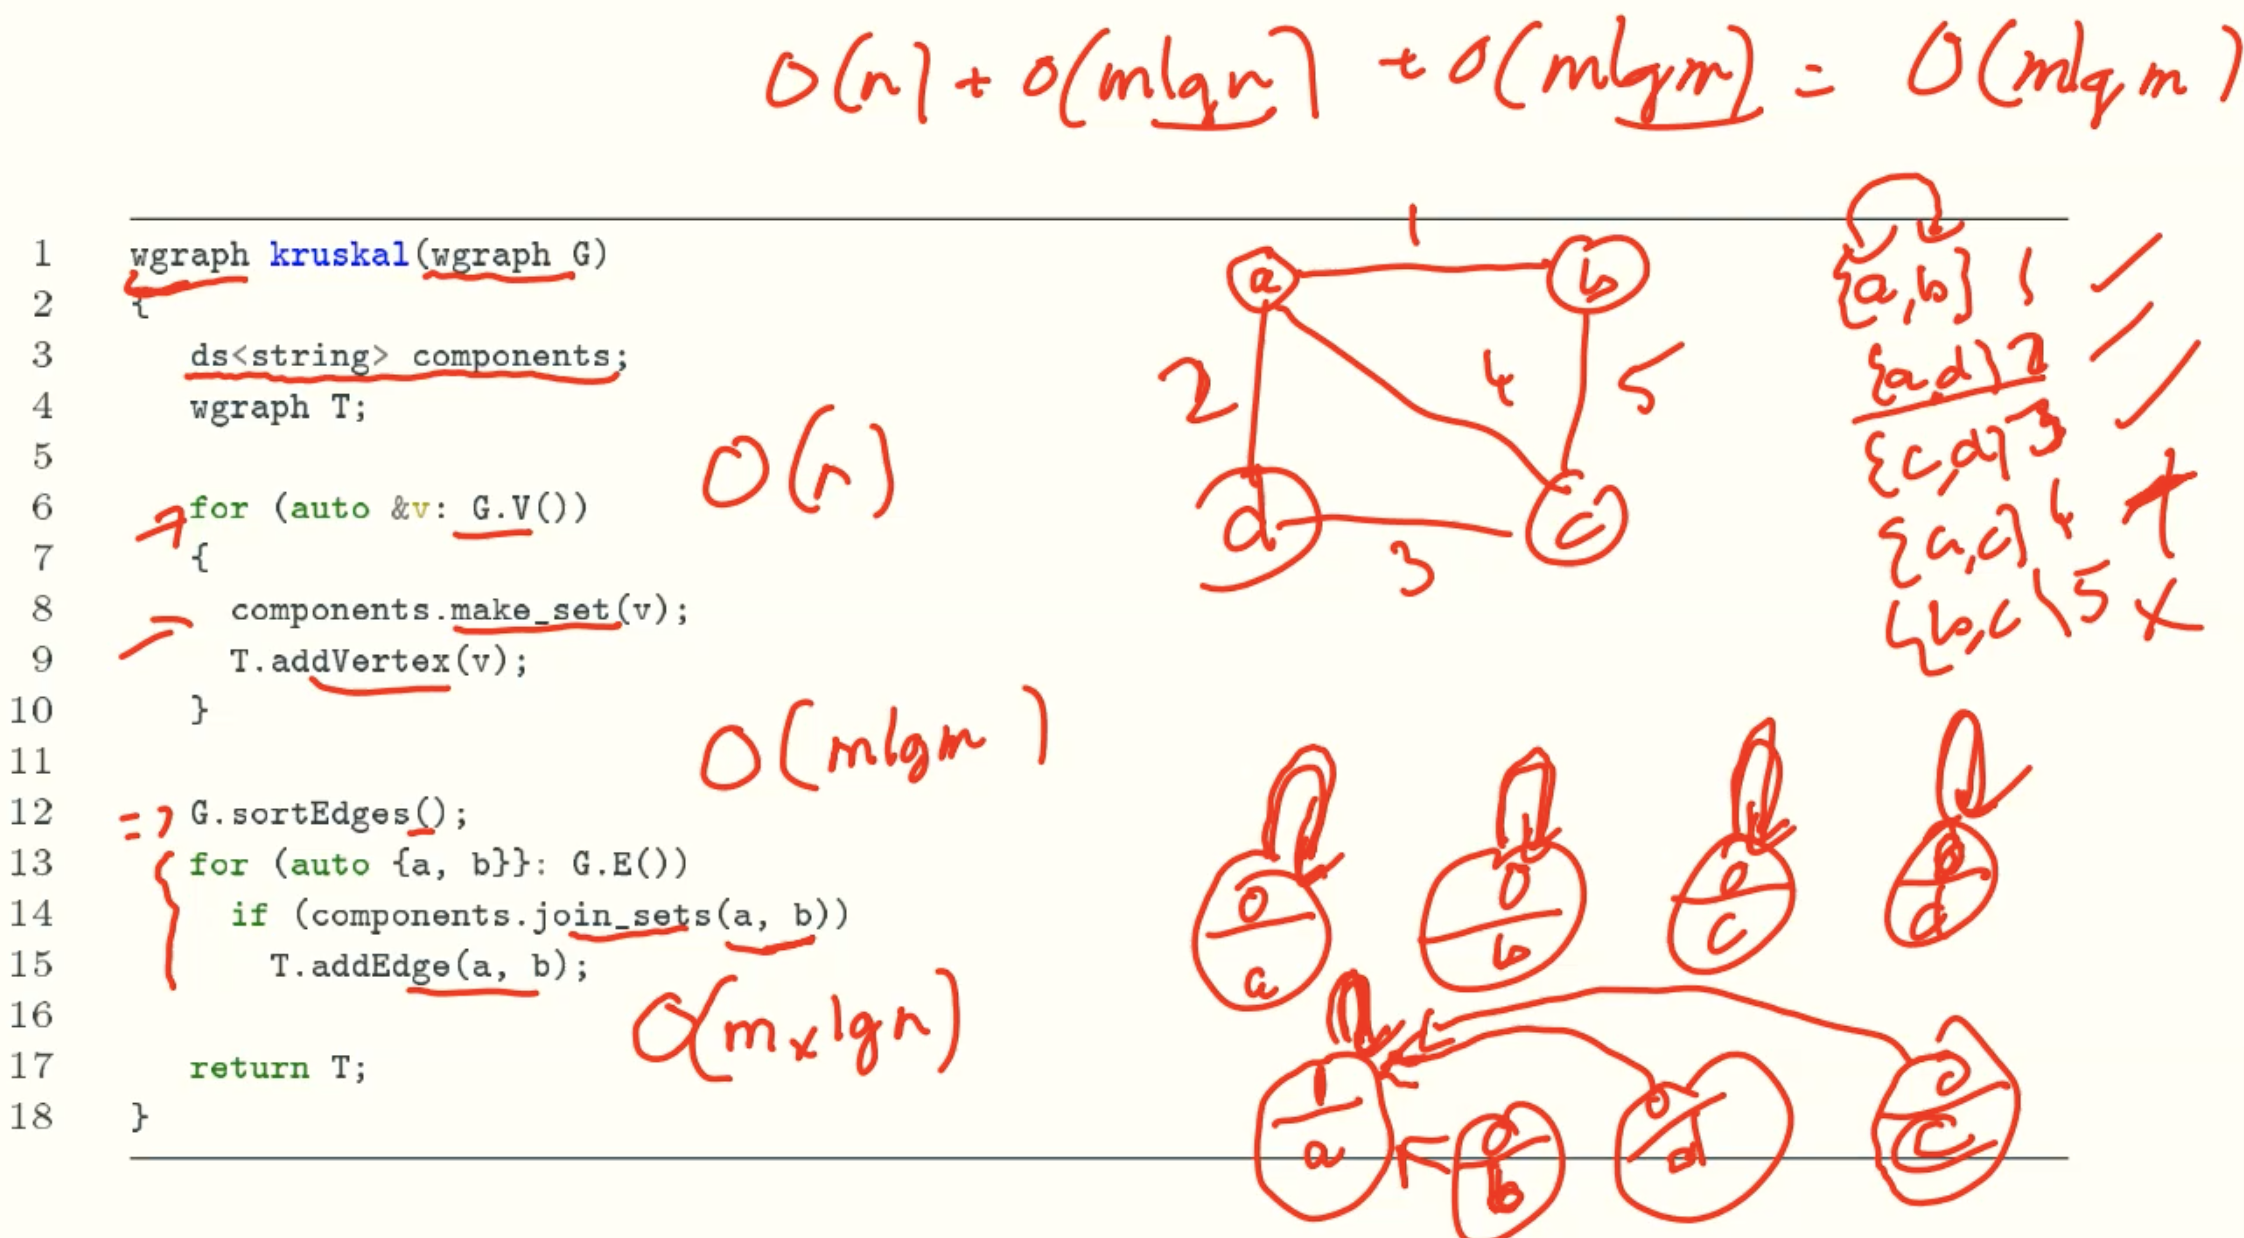 O(n) + O(mlgn) + O(mlgm) = O(mlgm)
1 wgraph kruskal(wgraph G)
2 {
3 ds<string> components;
4 wgraph T;
5
6 for (auto &v: G.V())
7 {
8 components.make_set(v);
9 T.addVertex(v);
10 }
11
12 G.sortEdges();
13 for (auto {a, b}}: G.E())
14 if (components.join_sets(a, b))
15 T.addEdge(a, b);
16
17 return T;
18 }
O(n)
O(mlgm)
O(m x lgn)
1
a b
2 4 5
d c
3
{a,b} 1
{a,d} 2
{c,d} 3
{a,c} 4
{b,c} 5 x
0 0 0 0
a b c d
1 0 0 0
a b d c